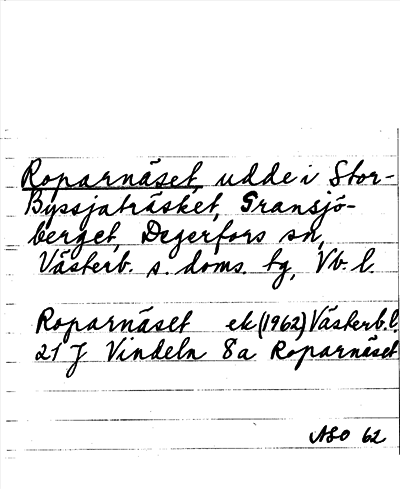 Roparnäset, udde i Stor-
Byssjaträsket, Gransjö-
berget, Degerfors sn,
Västerb. s. doms. tg, Vb. l.
Roparnäset ek (1962) Västerb. l.
21 J Vindeln 8a Roparnäset
ASO 62